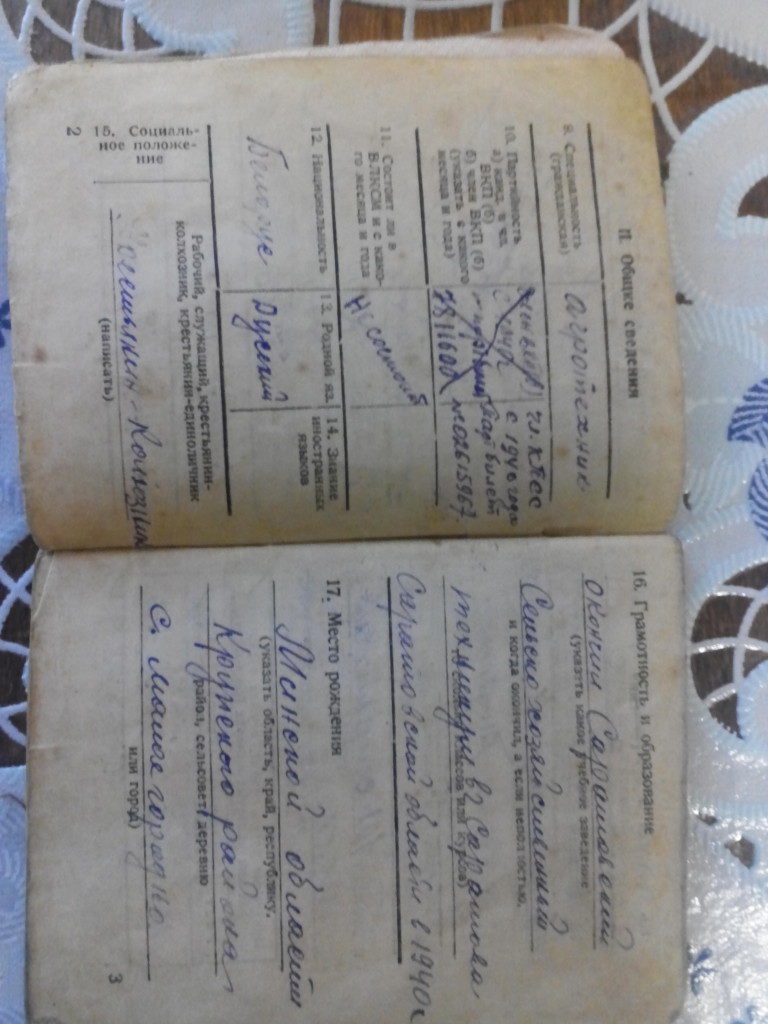 II. Общие сведения
9. Специальность
(гражданская)
агротехник
10. Партийность
а) канд. в чл.
ВКП (б)
б) член ВКП (б)
(указать с какого
месяца и года)
чл. КПСС
с 1940 года
билет
7811600
№ 02615967.
11. Состоит ли в
ВЛКСМ и с како-
го месяца и года
не состоит
12. Национальность
Белорус
13. Родной яз.
Русский
14. Знание
иностранных
языков
15. Социаль-
ное положе-
ние
Рабочий, служащий, крестьянин-
колхозник, крестьянин-единоличник
(написать)
2
16. Грамотность и образование
окончил Саратовский
(указать какое учебное заведение
Сельскохозяйственный
и когда окончил, а если неполностью,
техникум в г. Саратова
Саратовской области в 1940 г
17. Место рождения
Минской области
(указать область, край, республику,
Крупского района
район, сельсовет, деревню
с.
или город)
3